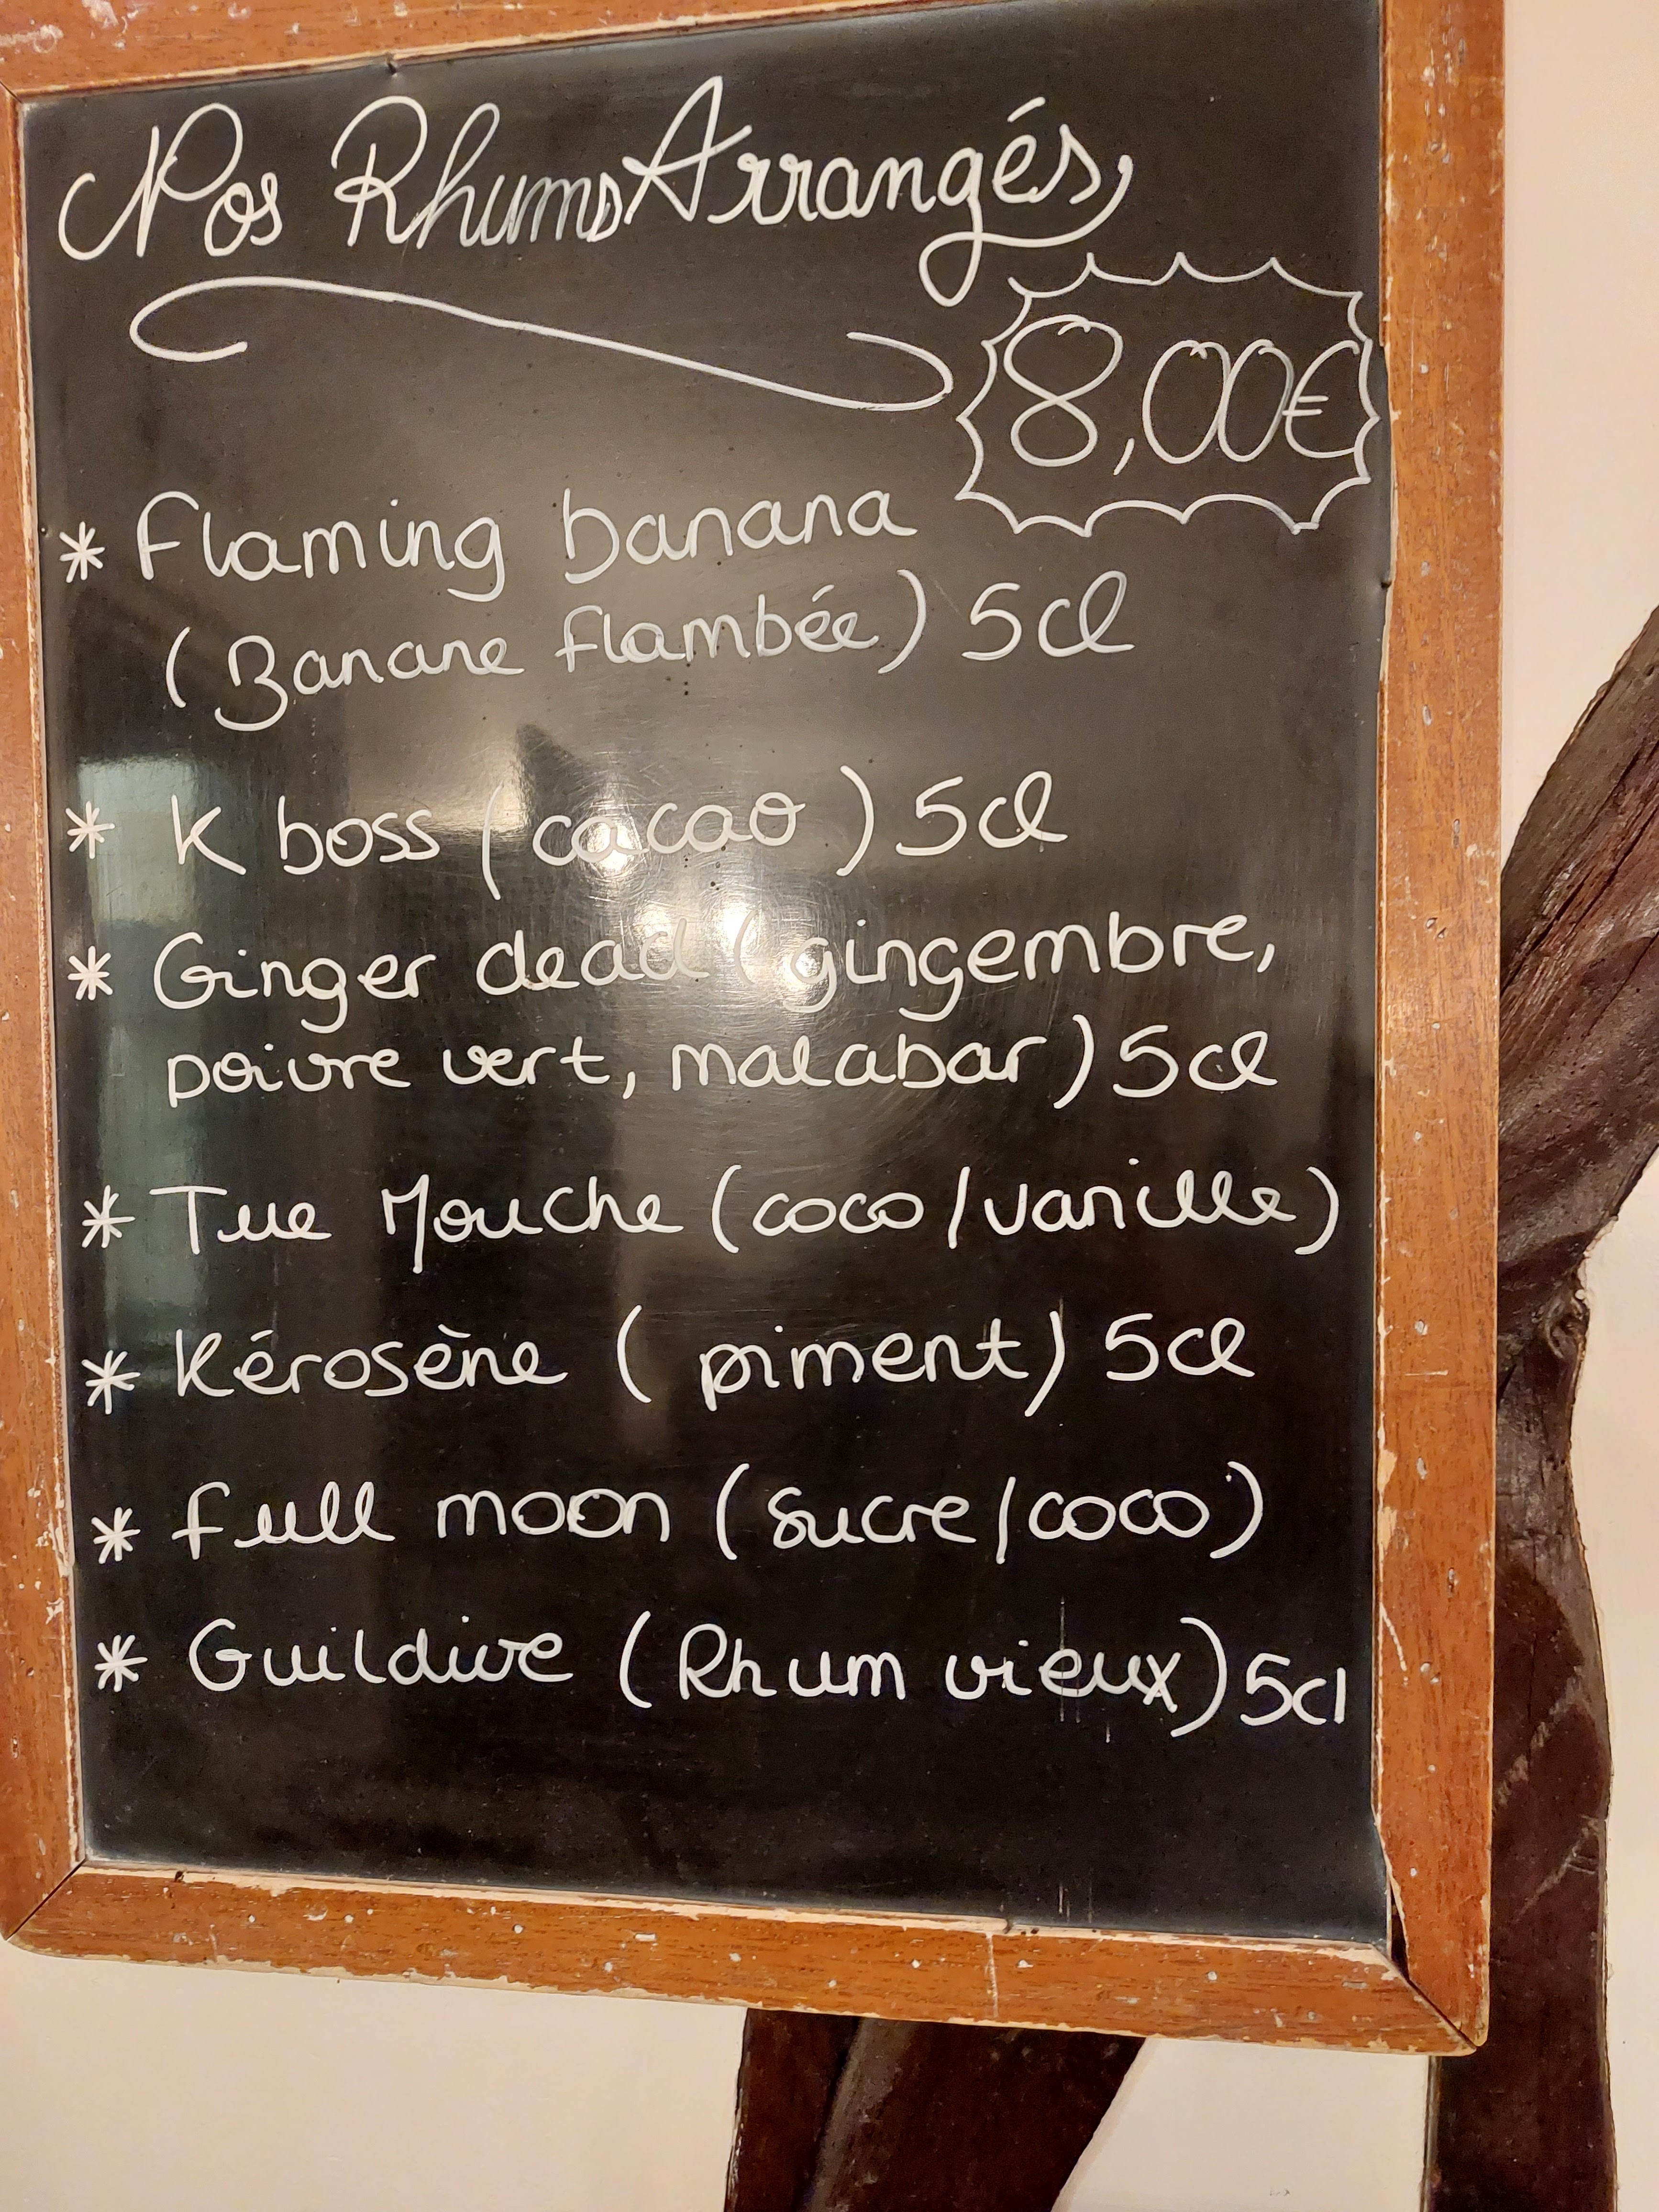 Nos Rhums Arrangés
8,00€
* Flaming banana
(Banane flambée) 5cl
* K boss (cacao) 5cl
* Ginger dead (gingembre,
poivre vert, malabar) 5cl
* Tue Mouche (coco/vanille)
* Kérosène (piment) 5cl
* full moon (sucre/coco)
* Guildive (Rhum vieux) 5cl